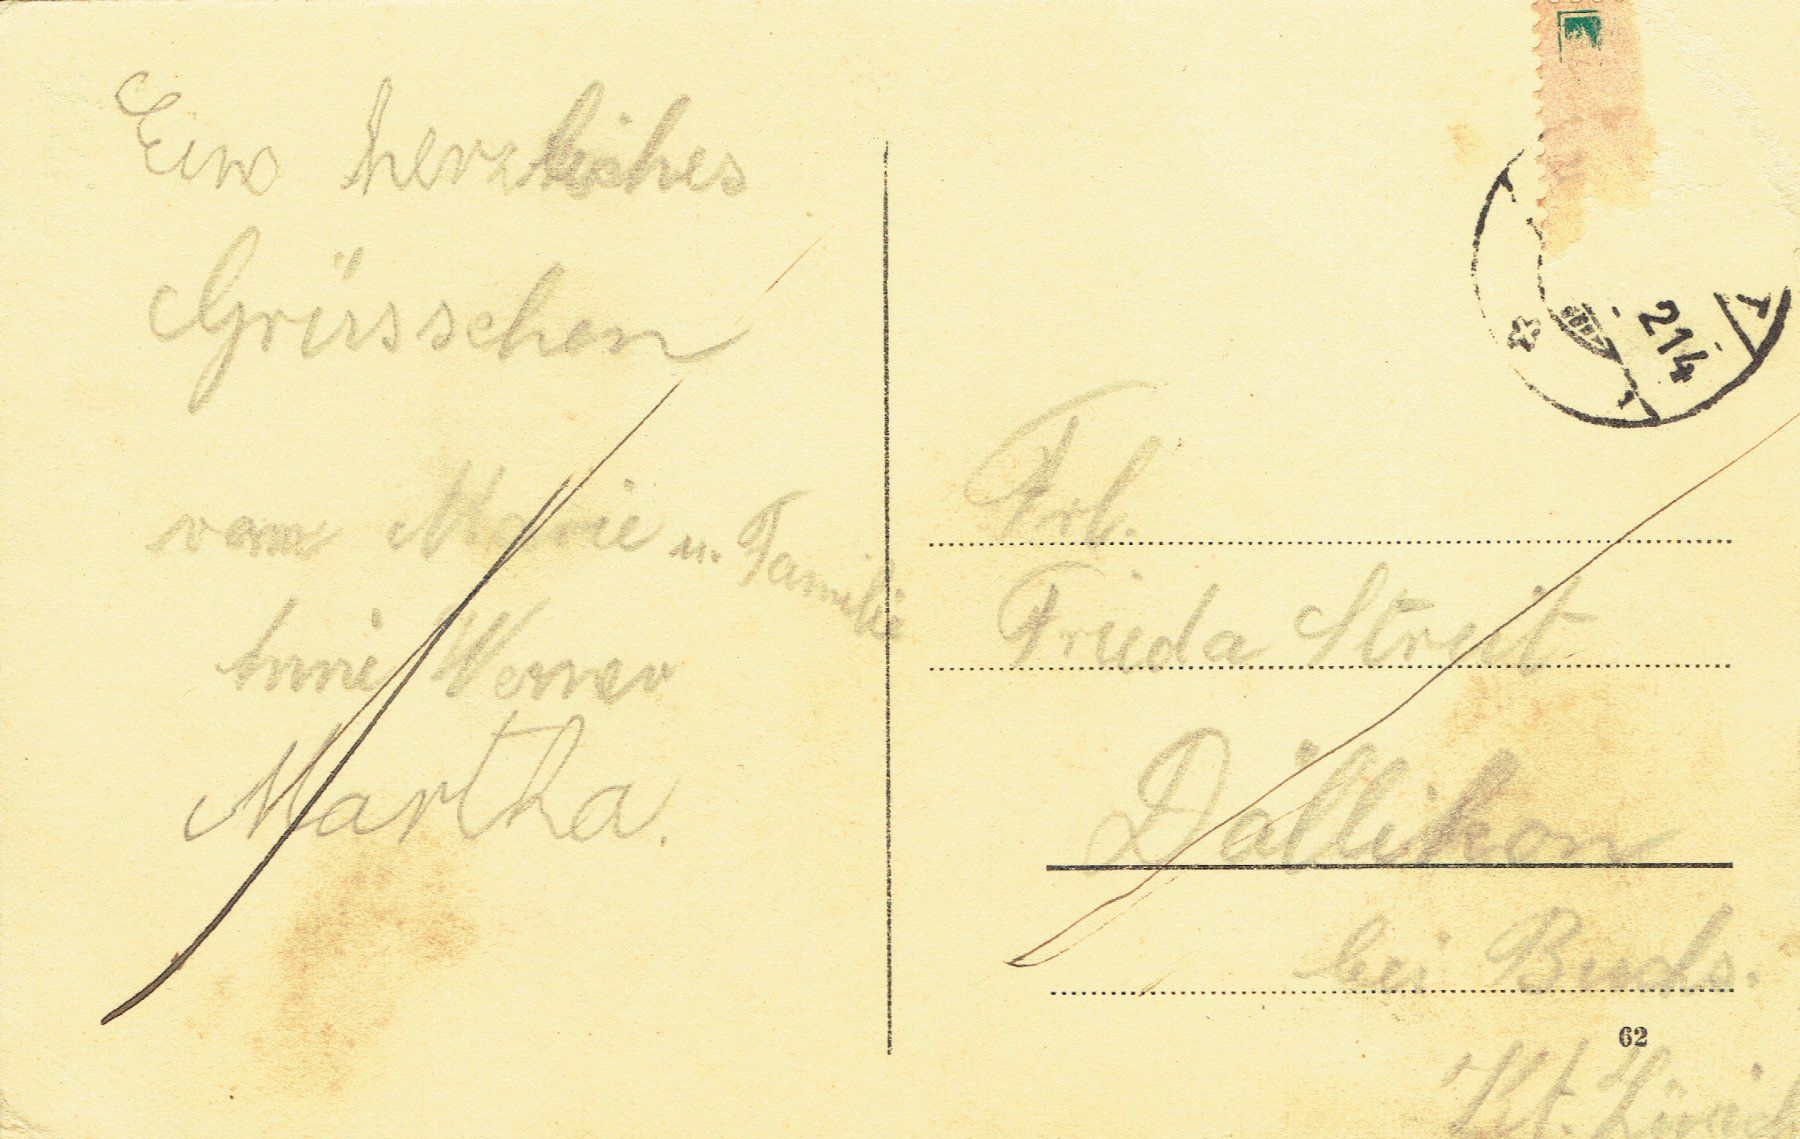 Ein herzliches
Grüsschen
vom Marie u. Familie
Anni Werner
Martha.
214
Frl.
Frieda Streit
Dällikon
bei Buchs.
62
Kt. Zürich